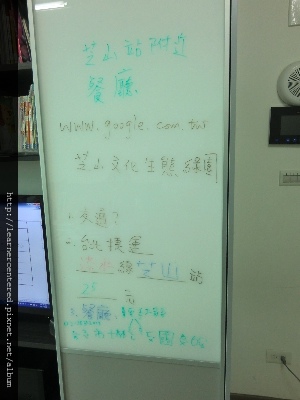 芝山站附近
餐廳
www.google.com.tw
芝山文化生態綠園
1. 交通?
2. 台北捷運
淡水線芝山站
25 元
3. 餐廳
http://learnercentered.pixnet.net/album